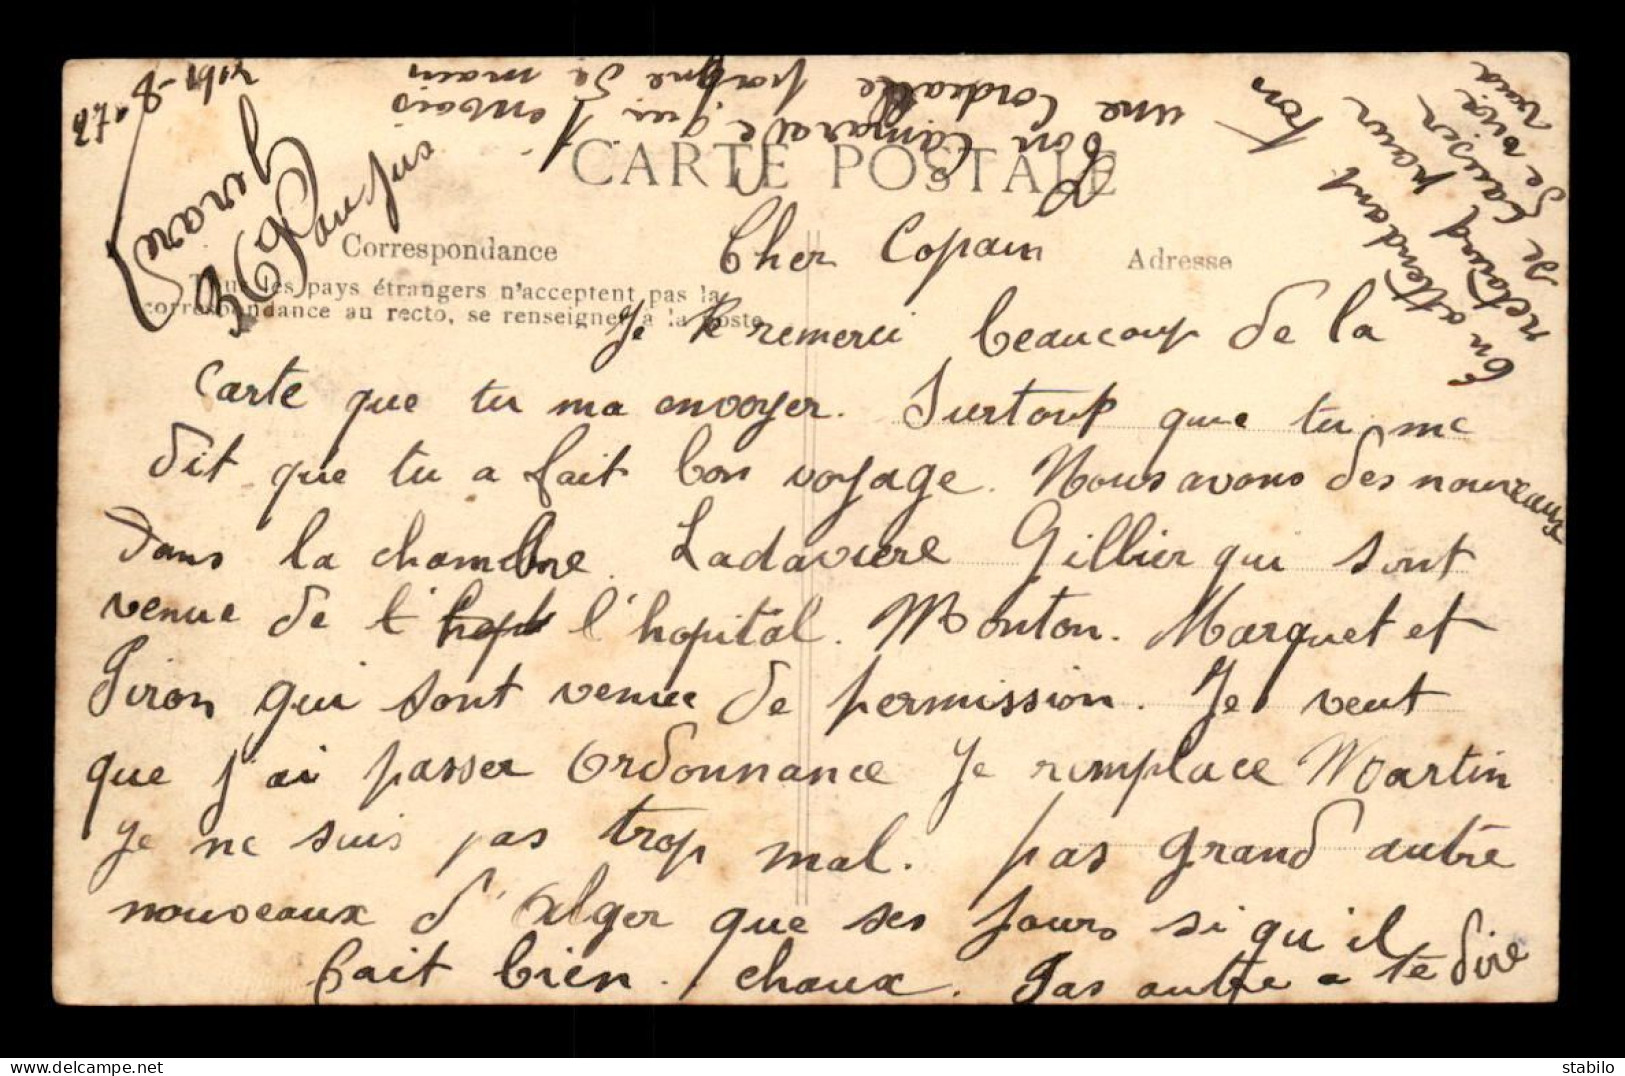 27-8-1912
CARTE POSTALE
Correspondance
Adresse
Tous les pays étrangers n'acceptent pas la
correspondance au recto, se renseigner à la poste
Cher Copain
Je te remerci beaucoup de la
carte que tu ma envoyer. Surtout que tu me
dit que tu a fait bon voyage. Nous avons des nouveaux
dans la chambre. Ladaviere Gillier qui sont
venue de l' l'hopital. Monton. Marquet et
Giron qui sont venue de permission. Je veut
que j'ai passer Ordonnance je remplace Martin
je ne suis pas trop mal. pas grand autre
nouveaux d'Alger que ses jours si qu'il
fait bien chaux. Pas autre a te dire
En attendant pour
retour
de causer
de vive
voix
Ton
bon camarade qui t'envois
une cordialle poigne de main